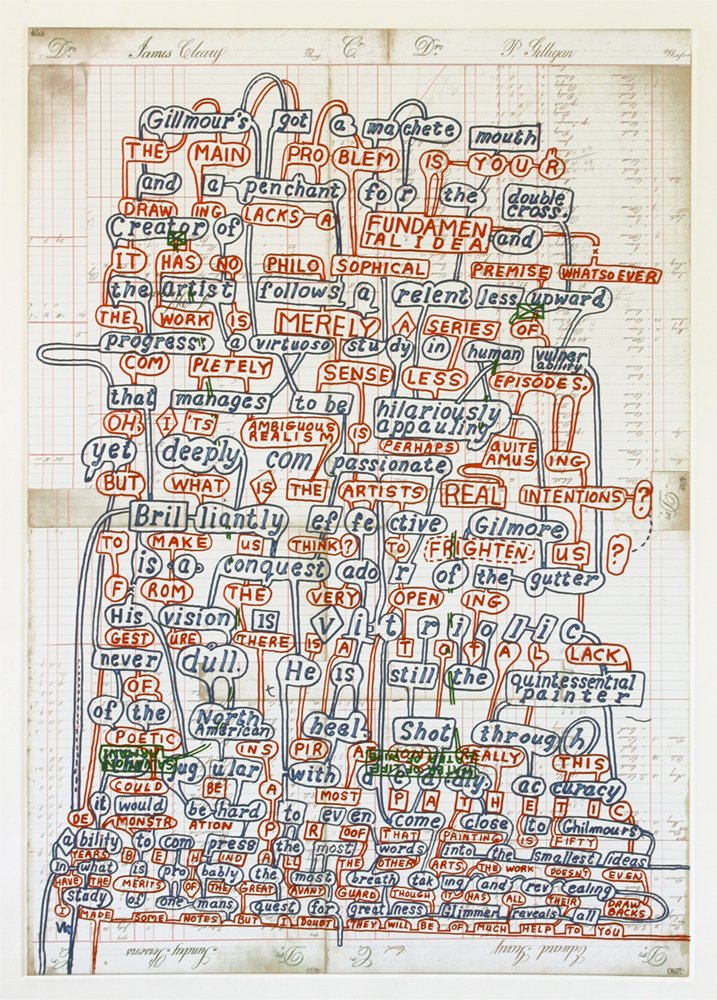 453 Dr. James Cleary Cr. Dr. P. Gilligan
Gilmour's got a machete mouth
THE MAIN PROBLEM IS YOUR
and a penchant for the double cross.
DRAWING LACKS A FUNDAMENTAL IDEA
Creator of and
IT HAS NO PHILOSOPHICAL PREMISE WHATSOEVER
the artist follows a relentless upward
THE WORK IS MERELY A SERIES OF
progress a virtuoso study in human vulnerability
COMPLETELY SENSELESS EPISODES.
that manages to be hilariously appauling
OH, I 'TS' "AMBIGUOUS REALISM IS PERHAPS QUITE AMUSING
yet deeply compassionate
BUT WHAT IS THE ARTISTS REAL INTENTIONS - ?
Brilliantly effective Gilmore
TO MAKE US THINK? TO FRIGHTEN US ?
is a conquestador of the gutter
FROM THE VERY OPENING
His vision is vitriolic
GESTURE THERE IS A TOTAL LACK
never dull. He is still the quintessential painter
OF
of the North American heel. Shot through
POETIC INSPIR REALLY THIS
with accuracy
COULD BE A MOST PATHETIC
it would be hard to even come close to Ghilmours
DEMONSTRATION PROOF THAT PAINTING IS FIFTY
ability to compress the most words into the smallest ideas
YEARS BEHIND ALL THE OTHER ARTS THE WORK DOESN'T EVEN
in what is probably the most breath taking and revealing
HAVE THE MERITS OF THE GREAT AVANT GUARD THOUGH IT HAS ALL THEIR DRAWBACKS
study of one mans quest for greatness Glimmer reveals all
I MADE SOME NOTES BUT I DOUBT THEY WILL BE OF MUCH HELP TO YOU